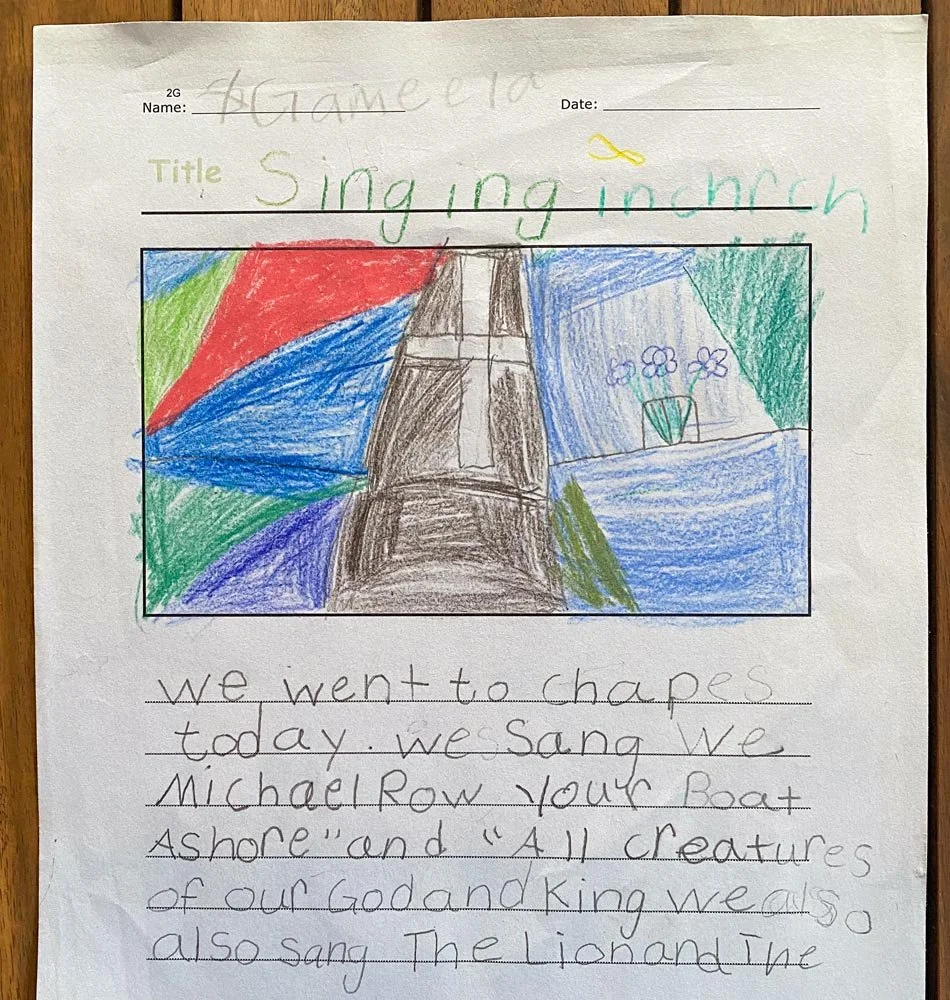 2G
Name: Gameela Date:
Title Singing inchrch
we went to chapes
today. we Sang We
Michael Row Your Boat
Ashore" and "All creatures
of our God and King we also
also sang The Lion and The